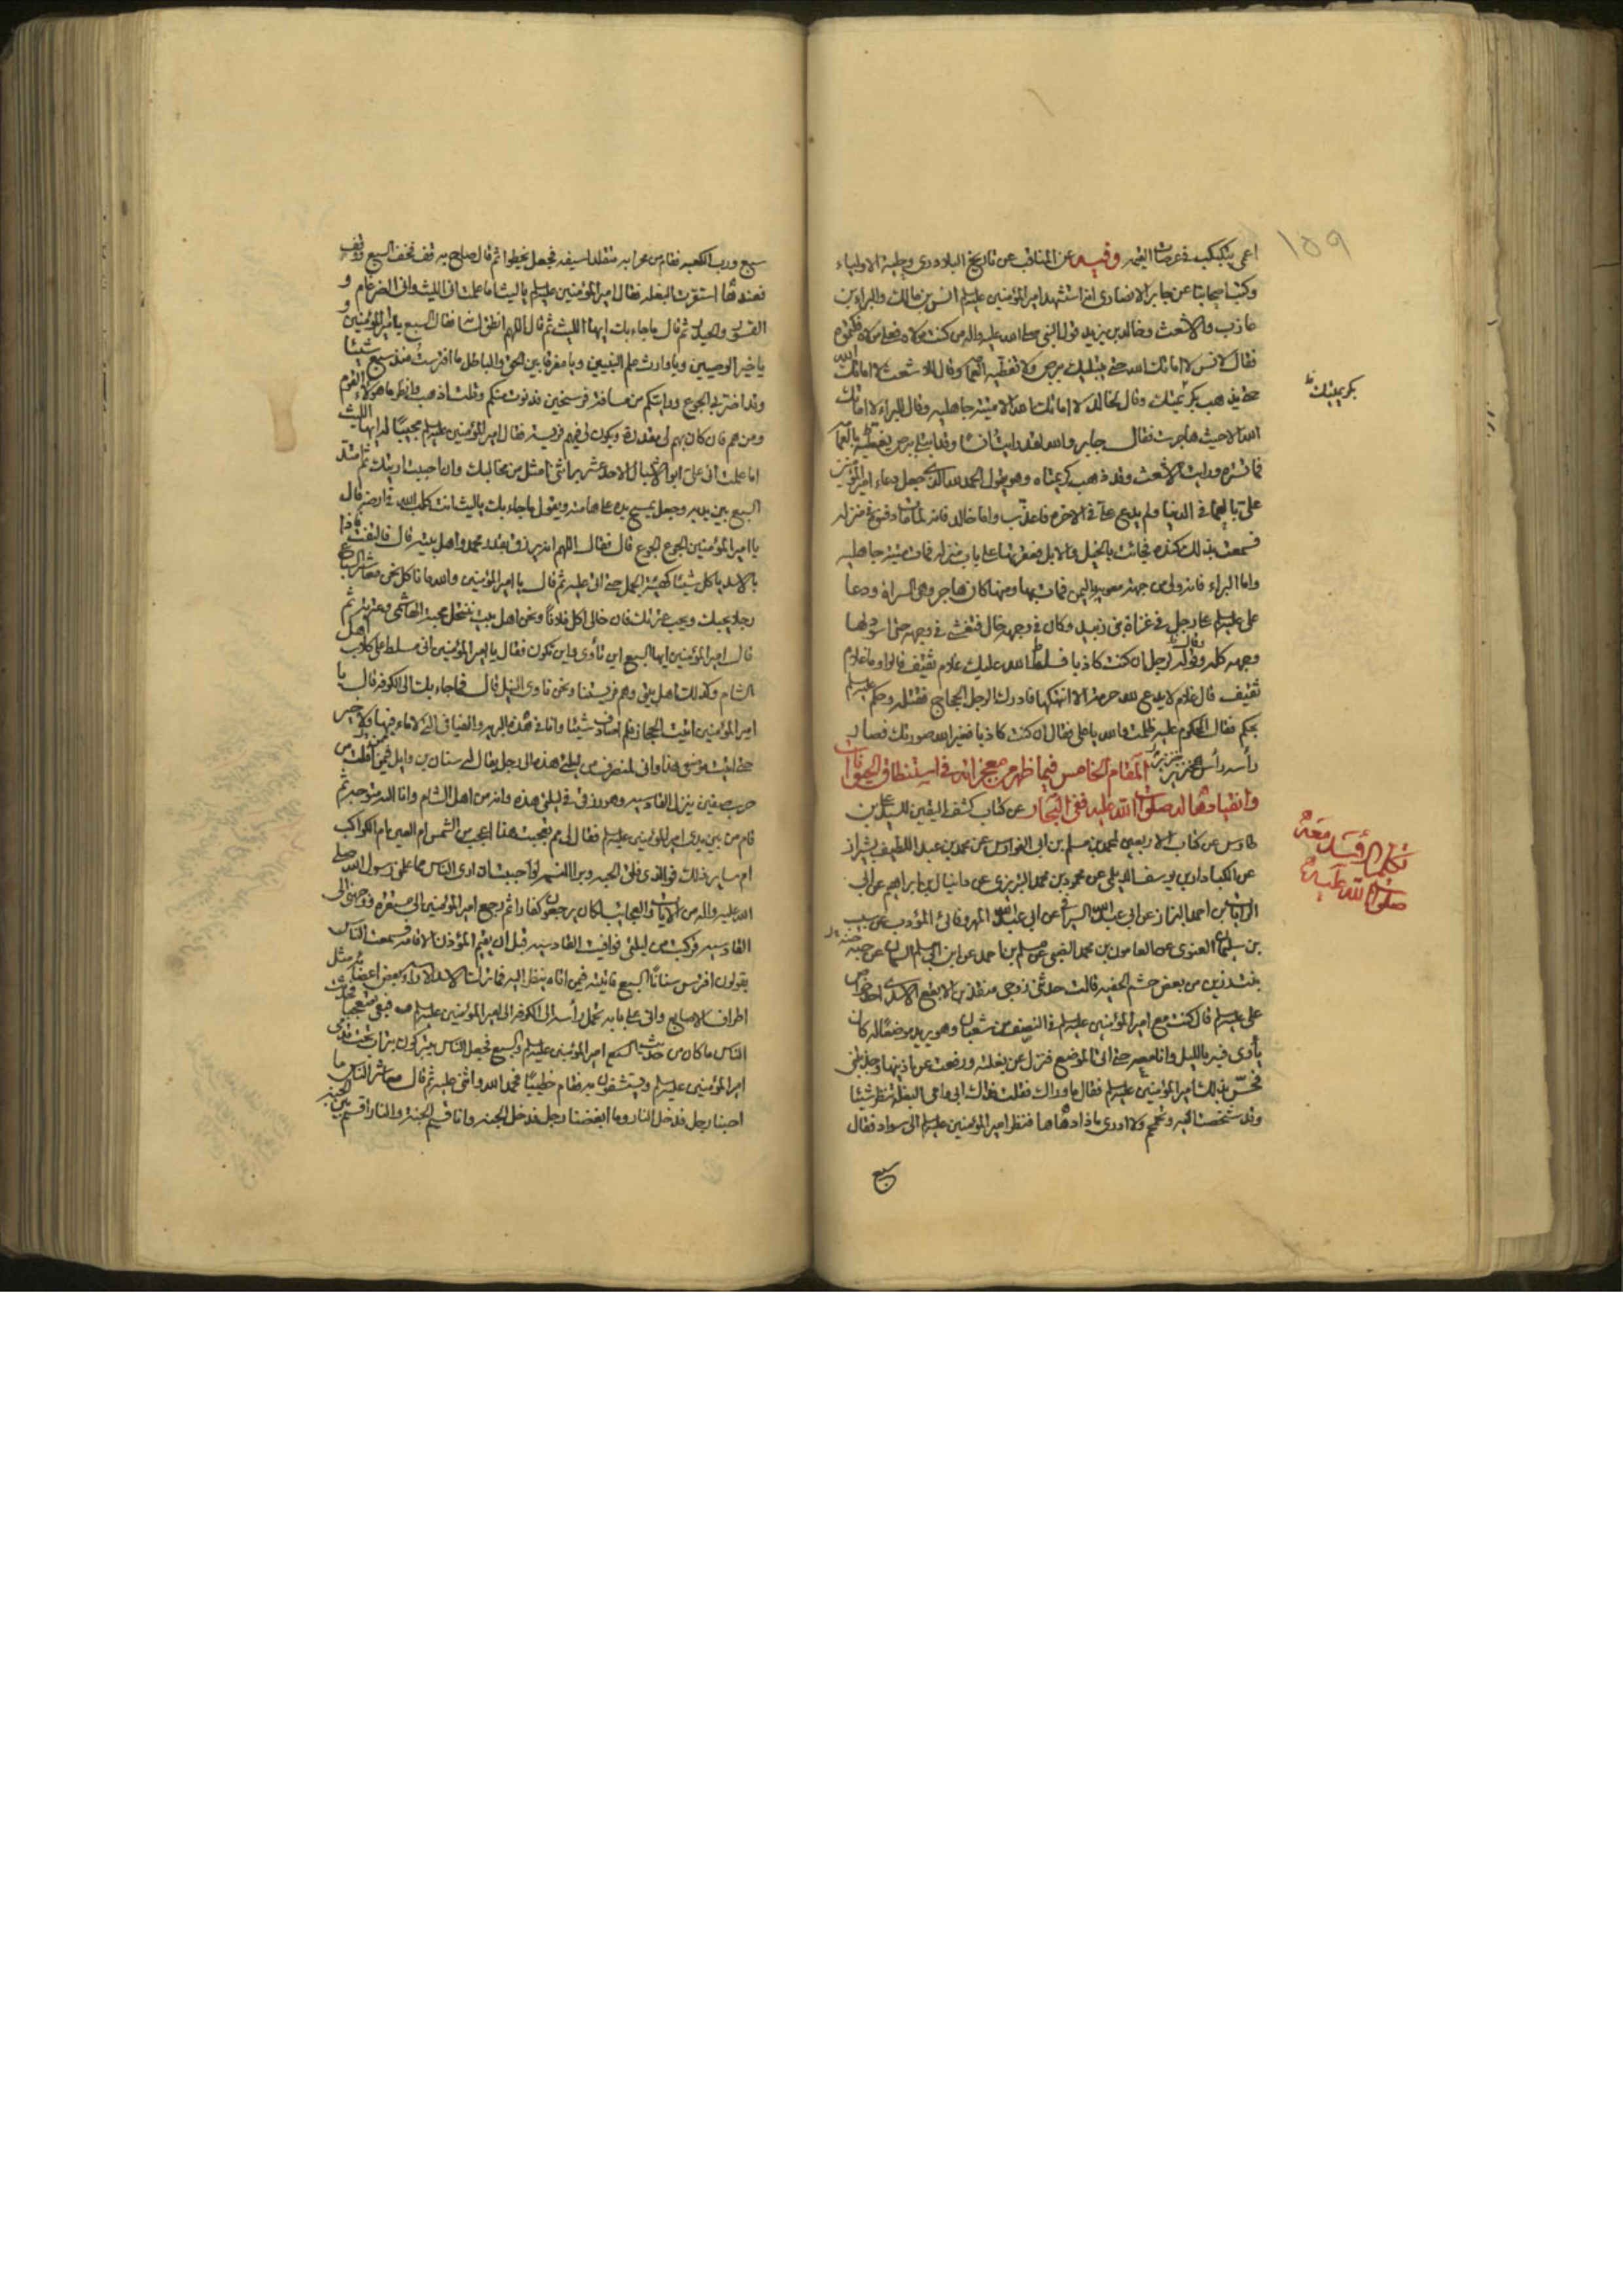 ١٥٩
اعمى يتكبكب في عرصات القيمه وفيه عن المناقب عن تاريخ البلاذرى وحلية الاولياء
وكتب اصحابنا عن جابر الانصارى انه استشهد امير المؤمنين عليه السلم انس بن مالك والبراء بن
عازب والاشعث وخالد بن يزيد قول النبي صلى الله عليه واله من كنت مولاه فعلى مولاه فكتموه
فقال لانس لا اماتك الله حتى يبتليك ببرص لا تغطيه العمامة وقال للاشعث لا اماتك الله
حتى يذهب بكريمتك وقال لخالد لا اماتك الله الا ميتة جاهليه وقال للبراء لا اماتك
الله الا حيث هاجرت فقال جابر والله لقد رايت انسا وقد ابتلى ببرص يغطيه بالعمامة
فما تستره ورايت الاشعث وقد ذهب كريمتاه وهو يقول الحمد لله الذى جعل دعاء امير المؤمنين
على بالعمى في الدنيا ولم يدع على في الاخرة فاعذب واما خالد فانه لما مات دفنوه في منزله
فسمعت بذلك كنده فجائت بالخيل والابل فعقرتها على باب منزله فمات ميتة جاهليه
واما البراء فانه ولى من جهة معويه باليمن فمات بها ومنها كان هاجر وهي السراة ودعا
على عليه السلم على رجل في غزاة بنى زبيد وكان في وجهه خال فتفشى في وجهه حتى اسود لها
وجهه كله وقوله لرجل ان كنت كاذبا فسلط الله عليك غلام ثقيف قالوا وما غلام
ثقيف قال غلام لا يدع لله حرمة الا انتهكها فادرك الرجل الحجاج فقتله وحكم عليه السلم
بحكم فقال المحكوم عليه ظلمت والله يا على فقال ان كنت كاذبا فغير الله صورتك فصار
رأسه رأس خنزير المقام الخامس فيما ظهر من معجزاته في استنطاق الحيوانات
وانقيادها له صلوات الله عليه ففي البحار عن كتاب كشف اليقين للسيد على بن
طاوس عن كتاب الاربعين لمحمد بن مسلم بن ابى الفوارس عن محمد بن عبد اللطيف بشيراز
عن الكيا دار بن يوسف الديلمى عن محمود بن محمد التبريزى عن دانيال بن ابراهيم عن ابى
بن احمد البزاز عن ابى عبد الله السيرافى عن ابى عبد الله المهروقانى المؤدب عن
بن سليمان الغنوى عن محمد الضبى عن مسلم بن احمد عن ابن ابى مسلم السمان عن حبه
بنت زريق من بعض حشم الخليفه قالت حدثنى زوجى منقذ بن الابقع الاسدى احد خواص
على عليه السلم قال كنت مع امير المؤمنين عليه السلم في النصف من شعبان وهو يريد موضعا له كان
يأوى فيه بالليل وانا معه حتى اتى الموضع فنزل عن بغلته ورفعت عن اذنيها وجذبتنى
فحس بذلك امير المؤمنين عليه السلم فقال ما وراك فقلت فداك ابى وامى البغلة تنظر شيئا
وقد شخصت اليه وتحمحم ولا ادرى ماذا دهاها فنظر امير المؤمنين عليه السلم الى سواد فقال
سبع
بكريمتيك
تكلم الاسد معه
صلوات الله عليه
سبع ورب الكعبه فقام من محرابه متقلدا سيفه فجعل يخطوا ثم قال صاح به قف فخف السبع ووقف
فعندها استقرت البغله فقال امير المؤمنين عليه السلم يا ليث اما علمت انى الليث وانى الضرغام و
القسور والحيدر ثم قال ما جاء بك ايها الليث ثم قال اللهم انطق لسانه فقال السبع يا امير المؤمنين و
يا خير الوصيين ويا وارث علم النبيين ويا مفرقا بين الحق والباطل ما افترست منذ سبع شيئا
وقد اضر بى الجوع ورايتكم من مسافة فرسخين فدنوت منكم وقلت اذهب فانظر ما هؤلاء القوم
ومن هم فان كان بهم لى مقدرة ويكون لى فيهم فريسة فقال امير المؤمنين عليه السلم مجيبا له ايها الليث
اما علمت انى على ابو الاشبال الاحد عشر براثنى امثل من مخالبك وان احببت اريتك ثم امتد
السبع بين يديه وجعل يمسح يده على هامته ويقول ما جاء بك يا ليث انت كلب الله في ارضه قال
يا امير المؤمنين الجوع الجوع قال فقال اللهم ارزقه بقدر محمد واهل بيته قال فالتفت فاذا
بالاسد ياكل شيئا كهيئة الجمل حتى اتى عليه ثم قال يا امير المؤمنين والله ما نأكل نحن معاشر السباع
رجلا يحبك ويحب عترتك فان خالى اكل فلانا ونحن اهل بيت ننتحل محبة الهاشمى وعترته ثم
قال امير المؤمنين ايها السبع اين تأوى واين تكون فقال يا امير المؤمنين انى مسلط على كلاب اهل
الشام وكذلك اهل بيتى وهم فريستنا ونحن نأوى النيل قال فما جاء بك الى الكوفه قال يا
امير المؤمنين اتيت الحجاز فلم اصادف شيئا وانا في هذه البريه والفيافى التى لا ماء فيها ولا خير
موضعى هذا وانى لمنصرف من ليلتى هذه الى رجل يقال له سنان بن وايل فيمن افلت من
حرب صفين ينزل القادسيه وهو رزقى في ليلتى هذه وانه من اهل الشام وانا اليه متوجه ثم
قام من بين يدى امير المؤمنين عليه السلم فقال لى مم تعجبت هذا اعجب ام الشمس ام العين ام الكواكب
ام ساير ذلك فو الذى فلق الحبه وبرا النسمه لو احببت ان ارى الناس مما علمنى رسول الله صلى
الله عليه واله من الايات والعجايب لكان يرجعون كفارا ثم رجع امير المؤمنين الى مستقره ووجهنى الى
القادسيه فركبت من ليلتى فوافيت القادسيه قبل ان يقيم المؤذن الاقامه فسمعت الناس
يقولون افترس سنانا السبع فاتيته فيمن اتاه ينظر اليه فما ترك الاسد الا راسه وبعض اعضائه مثل
اطراف الاصابع وانى على بابه تحمل رأسه الى الكوفه الى امير المؤمنين عليه السلم فبقى متعجبا فحدثت
الناس ما كان من حديث امير المؤمنين عليه السلم والسبع فجعل الناس يتبركون بتراب تحت قدمى
امير المؤمنين عليه السلم ويستشفون به فقام خطيبا فحمد الله واثنى عليه ثم قال معاشر الناس ما
احبنا رجل فدخل النار وما ابغضنا رجل فدخل الجنه وانا قسيم الجنة والنار اقسم بين الجنه